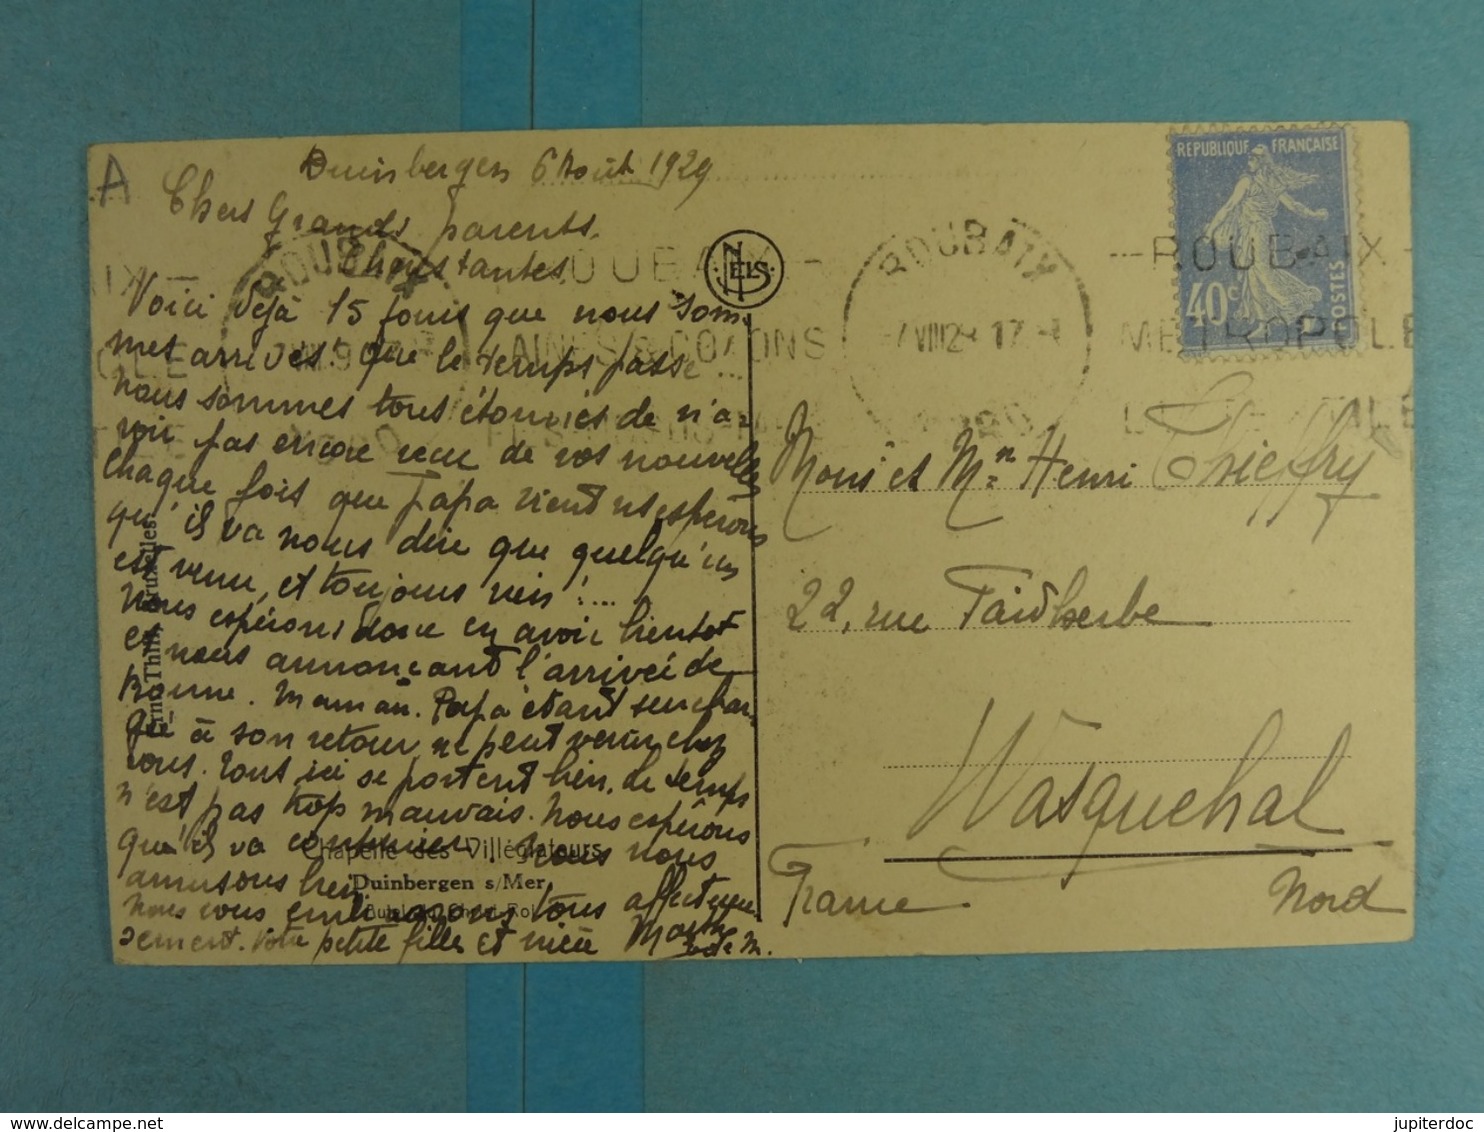 A
Duinbergen 6 Août 1929
Chers Grands parents
Chers tantes
Voici déjà 15 jours que nous som-
mes arrivés! Que le temps passe ...
nous sommes tous étonnés de n'a-
voir pas encore reçu de vos nouvelles
chaque fois que Papa vient ns espérons
qu'il va nous dire que quelqu'un
est venu, et toujours rien!...
Nous espérons donc en avoir bientot
et nous annonçant l'arrivée de
bonne. Maman. Papa étant
à son retour ne peut venir chez
vous. Tous ici se portent bien. le temps
n'est pas trop mauvais. Nous espérons
qu'il va continuer. Nous nous
amusons bien
Nous vous embrassons tous affectueu
sement. Votre petite fille et nièce Marth
M.
Chapelle des Villégiateurs
Duinbergen s/Mer
Ern. Thill, Bruxelles
NELS
ROUBAIX
ROUBAIX
LAINES & COTONS
ROUBAIX
7 VIII 29 17
NORD
ROUBAIX
METROPOLE
REPUBLIQUE FRANÇAISE
40c
POSTES
Monsr et Mme Henri Thieffry
22, rue Faidherbe
Wasquehal
France
Nord
jupiterdoc